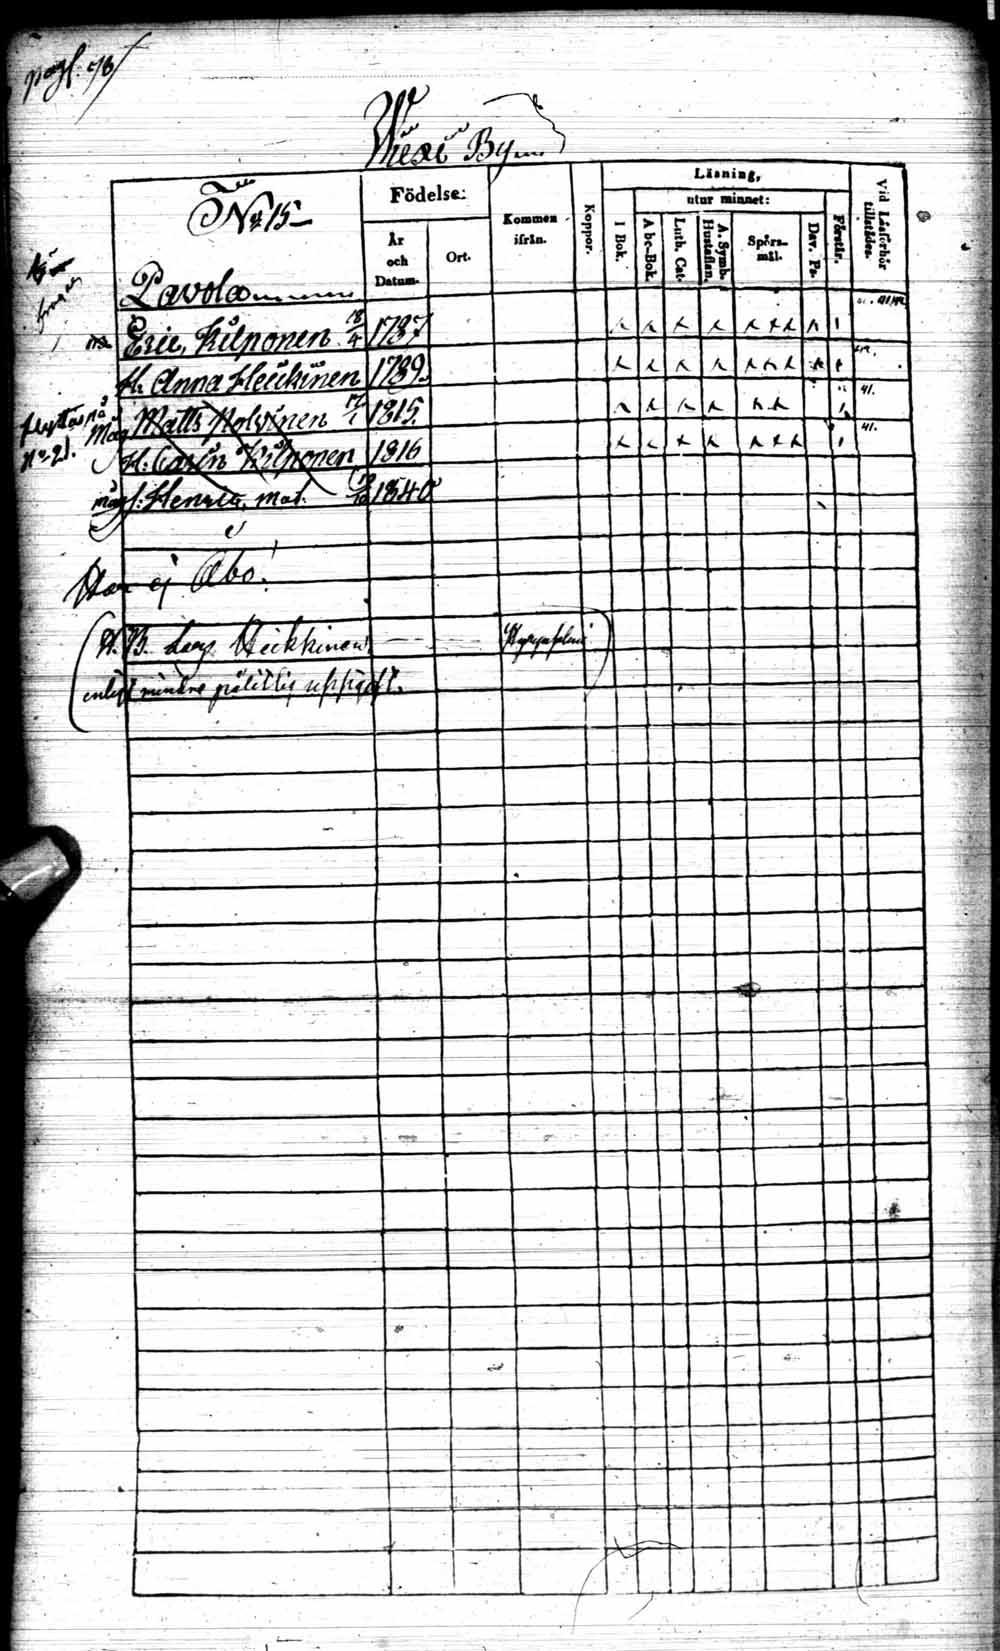 pag. 78
Wiexi By
N:o 15
Födelse:
År och Datum.
Ort.
Kommen ifrån.
Koppor.
Läsning,
utur minnet:
I Bok.
Abc-Bok.
Luth. Cat.
A. Symb. Hustaflan.
Spörsmål.
Dav. Ps.
Förstår.
Vid Läsförhör tillstädes.
Pavola
Eric, Kilponen 18/4 1787 41.42
H. Anna Heikinen 1789.
Matts Polvinen 17/1 1815. 41.
H: Carin Kilponen 1816 41.
Henric 1840
flyttas på
N:o 21.
Har ej Abo!
N.B. Lars Heikkinen Hyrynsalmi
enligt mindre pålitlig uppgift.